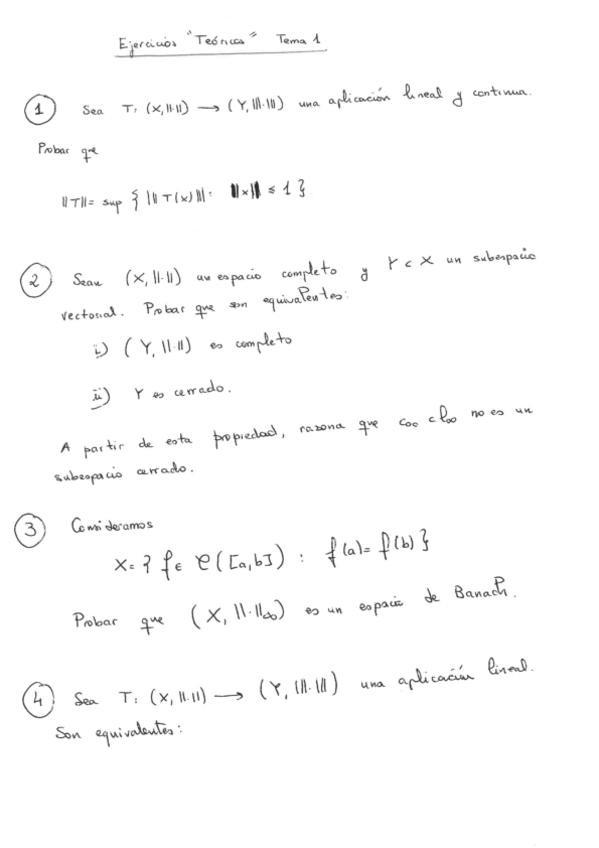 Ejercicios "Teóricos" Tema 1
① Sea T: (X, ||·||) → (Y, |||·|||) una aplicación lineal y continua.
Probar que
||T|| = sup { |||T(x)||| : ||x|| ≤ 1 }
② Sean (X, ||·||) un espacio completo y Y ⊂ X un subespacio
vectorial. Probar que son equivalentes:
i) (Y, ||·||) es completo
ii) Y es cerrado.
A partir de esta propiedad, razona que c₀₀ ⊂ l∞ no es un
subespacio cerrado.
③ Consideramos
X = { f ∈ C([a,b]) : f(a) = f(b) }
Probar que (X, ||·||∞) es un espacio de Banach.
④ Sea T: (X, ||·||) → (Y, |||·|||) una aplicación lineal.
Son equivalentes: